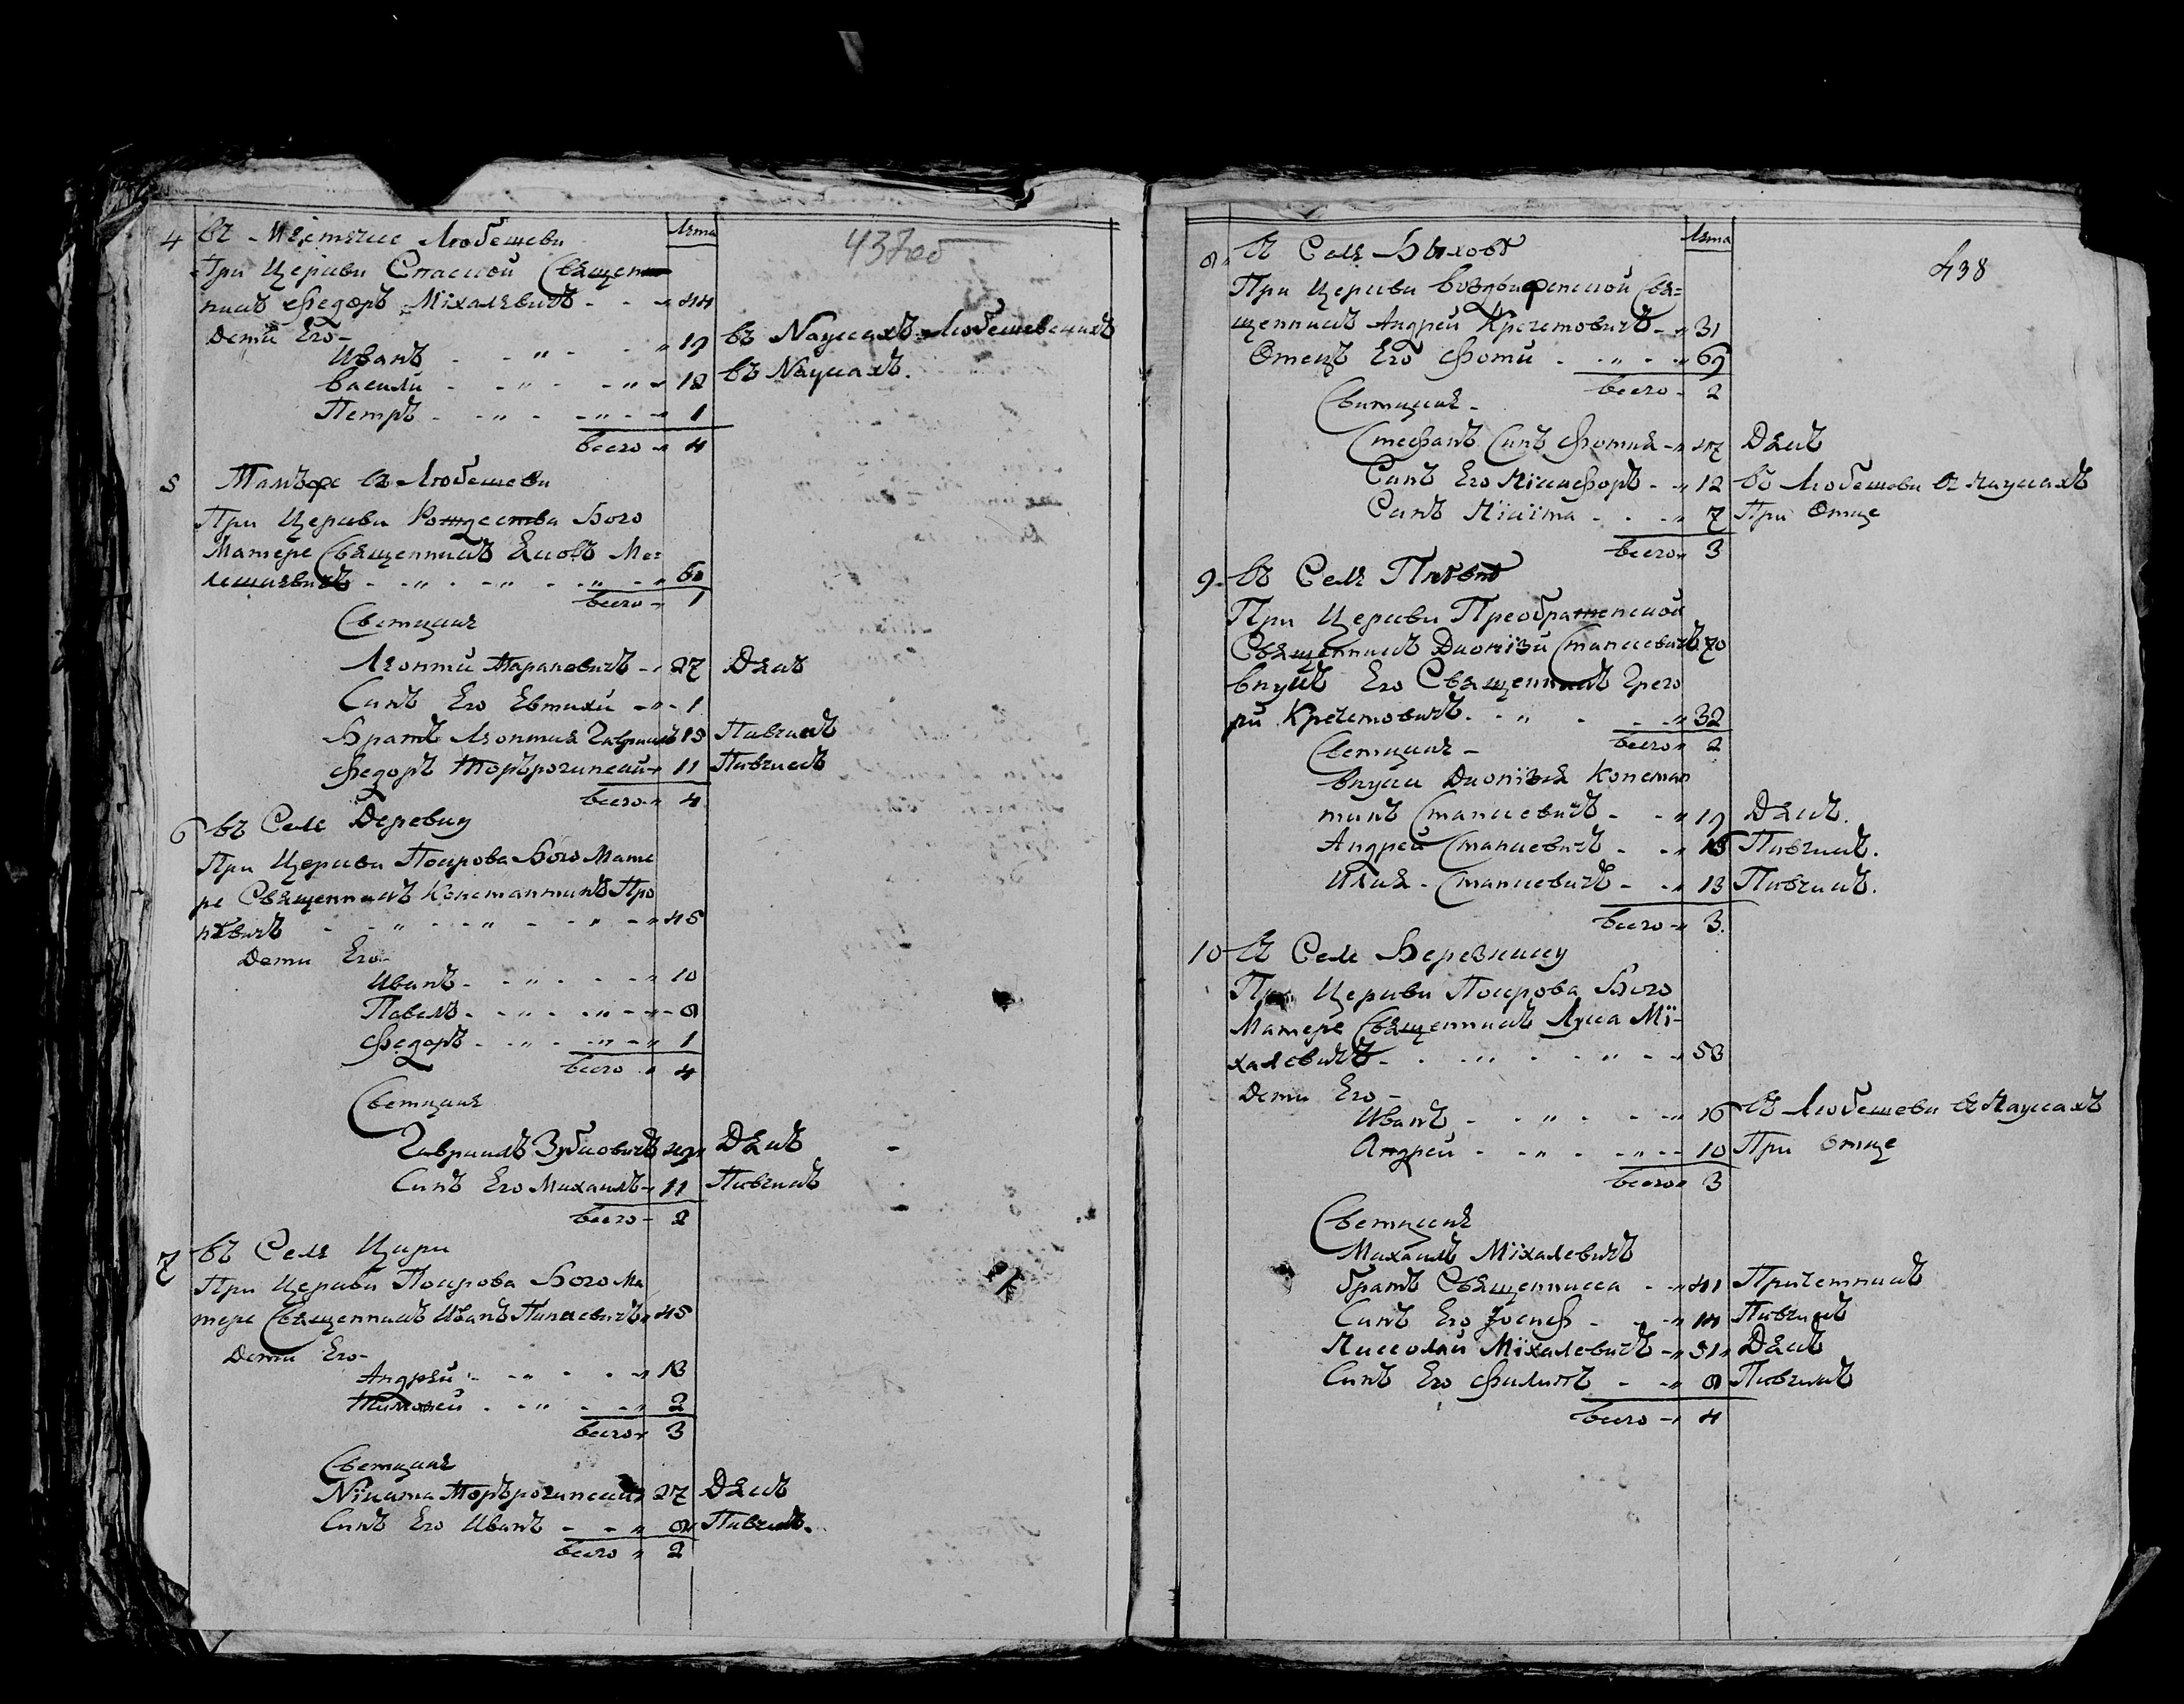 437 об
Лѣта
4 въ Мѣстечке Любешеви
При Церкви Спаской Священ
никъ Федоръ Міхалевичъ - - 44
Дети Его -
Иванъ - - 19 въ Наукахъ Любешевскихъ
Васили - - 12 въ Наукахъ.
Петръ - - 1
Всего - 4
5 Тамъже въ Любешеви
При Церкви Рождества Бого
Матере Священникъ Яковъ Ме=
лешкевичъ - - 60
Всего - 1
Светцкия
Леонти Тарановичъ - 27 Дякъ
Синъ Его Евтихи - - 1
Братъ Леонтия Гавриилъ 15 Пивчикъ
Федоръ Торърочинский 11 Пивчикъ
Всего - 4
6 въ Селе Деревку
При Церкви Покрова Бого Мате
ре Священникъ Константинъ Про
невичъ - - 45
Дети Его -
Иванъ - - 10
Павелъ - - 8
Федоръ - - 1
Всего - 4
Светцкия
Гавриилъ Зубковичъ 49 Дякъ
Синъ Его Михаилъ - 11 Пивчикъ
Всего - 2
7 въ Селѣ Цири
При Церкви Покрова Бого Ма
тере Священникъ Иванъ Панкевичъ 45
Дети Его -
Андрей - - 13
Тимофей - - 2
Всего - 3
Светцкия
Никита Торърочинский 27 Дякъ
Синъ Его Иванъ - - 8 Пивчикъ.
Всего - 2
438
Лѣта
8 въ Селѣ Быховѣ
При Церкви Воздвиженской Свя=
щенникъ Андрей Кречетовичъ - 31
Отецъ Его Фоти - - 69
Всего - 2
Свитцкия -
Стефанъ Синъ Фотия - 47 Дякъ
Синъ Его Никифоръ - 12 въ Любешови въ наукахъ
Синъ Нікіта - - 7 При Отце
Всего - 3
9 въ Селѣ
При Церкви Преображенской
Священникъ Дионізи Станкевичъ 70
Внукъ Его Священникъ Грего
ри Кречетовичъ - - 32
Всего - 2
Светцкия -
Внуки Дионізия Констан
тинъ Станкевичъ - - 19 Дякъ.
Андрей Станкевичъ - - 15 Пивчикъ.
Илия - Станкевичъ - - 13 Пивчикъ.
Всего - 3.
10 въ Селе Березничу
При Церкви Покрова Бого
Матере Священникъ Лука Мі-
халевичъ - - 53
Дети Его -
Иванъ - - 16 въ Любешеви въ Наукахъ
Андрей - - 10 При Отце
Всего - 3
Светцкия
Михаилъ Міхалевичъ
братъ Священника - - 41 Причетникъ
Синъ Его Іосиф - - 14 Пивчикъ
Николай Міхалевичъ - 51 Дякъ
Синъ Его Филипъ - - 8 Пивчикъ
Всего - 4